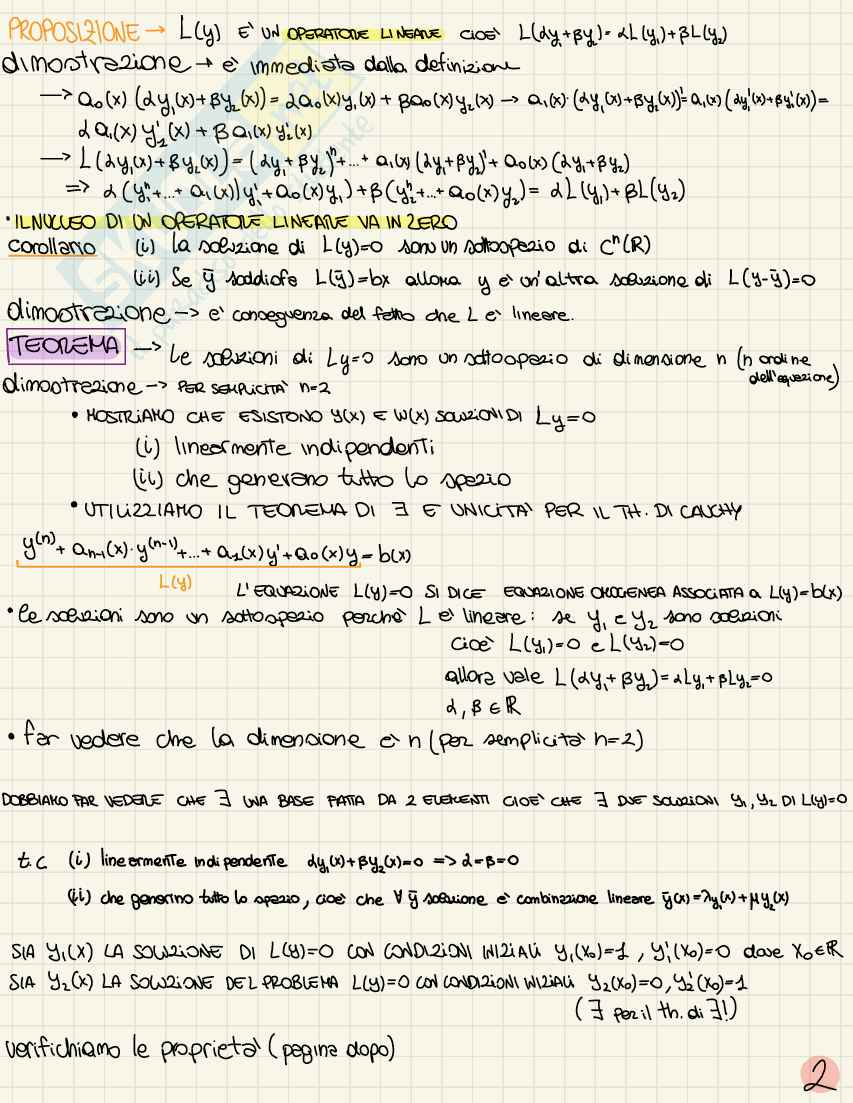 PROPOSIZIONE → L(y) E' UN OPERATORE LINEARE CIOE' L(αy₁+βy₂)= αL(y₁)+βL(y₂)
dimostrazione → e' immediata dalla definizione
→ a₀(x) (αy₁(x)+βy₂(x)) = αa₀(x)y₁(x) + βa₀(x)y₂(x) → a₁(x)·(αy₁(x)+βy₂(x))' = a₁(x) (αy₁'(x)+βy₂'(x)) =
αa₁(x) y₁'(x) + βa₁(x) y₂'(x)
→ L(αy₁(x)+βy₂(x)) = (αy₁+βy₂)ⁿ+...+ a₁(x) (αy₁+βy₂)' + a₀(x) (αy₁+βy₂)
⇒ α(y₁ⁿ+...+ a₁(x))y₁' + a₀(x)y₁) + β(y₂ⁿ+...+ a₀(x)y₂) = αL(y₁)+βL(y₂)
• IL NUCLEO DI UN OPERATORE LINEARE VA IN ZERO
corollario (i) la soluzione di L(y)=0 sono un sottospazio di Cⁿ(ℝ)
(ii) Se ȳ soddisfa L(ȳ)=bx allora y e' un'altra soluzione di L(y-ȳ)=0
dimostrazione → e' conseguenza del fatto che L e' lineare.
TEOREMA → Le soluzioni di Ly=0 sono un sottospazio di dimensione n (n ordine
dell'equazione)
dimostrazione → PER SEMPLICITA' n=2
• MOSTRIAMO CHE ESISTONO y(x) E W(x) SOLUZIONI DI Ly=0
(i) linearmente indipendenti
(ii) che generano tutto lo spazio
• UTILIZZIAMO IL TEOREMA DI ∃ E UNICITA' PER IL TH. DI CAUCHY
y⁽ⁿ⁾ + aₙ₋₁(x)·y⁽ⁿ⁻¹⁾+...+ a₁(x)y' + a₀(x)y = b(x)
L(y) L'EQUAZIONE L(y)=0 SI DICE EQUAZIONE OMOGENEA ASSOCIATA a L(y)=b(x)
• le soluzioni sono un sottospazio perche' L e' lineare: se y₁ e y₂ sono soluzioni
cioe' L(y₁)=0 e L(y₂)=0
allora vale L(αy₁+βy₂)= αLy₁+βLy₂=0
α, β ∈ ℝ
• far vedere che la dimensione e' n (per semplicita' n=2)
DOBBIAMO FAR VEDERE CHE ∃ UNA BASE FATTA DA 2 ELEMENTI CIOE' CHE ∃ DUE SOLUZIONI y₁, y₂ DI L(y)=0
t.c (i) linearmente indipendente αy₁(x)+βy₂(x)=0 => α=β=0
(ii) che generino tutto lo spazio, cioe' che ∀ ȳ soluzione e' combinazione lineare ȳ(x)=λy₁(x)+μy₂(x)
SIA y₁(x) LA SOLUZIONE DI L(y)=0 CON CONDIZIONI INIZIALI y₁(x₀)=1, y₁'(x₀)=0 dove x₀∈ℝ
SIA y₂(x) LA SOLUZIONE DEL PROBLEMA L(y)=0 CON CONDIZIONI INIZIALI y₂(x₀)=0, y₂'(x₀)=1
(∃ per il th. di ∃!)
verifichiamo le proprieta' (pagina dopo)
2